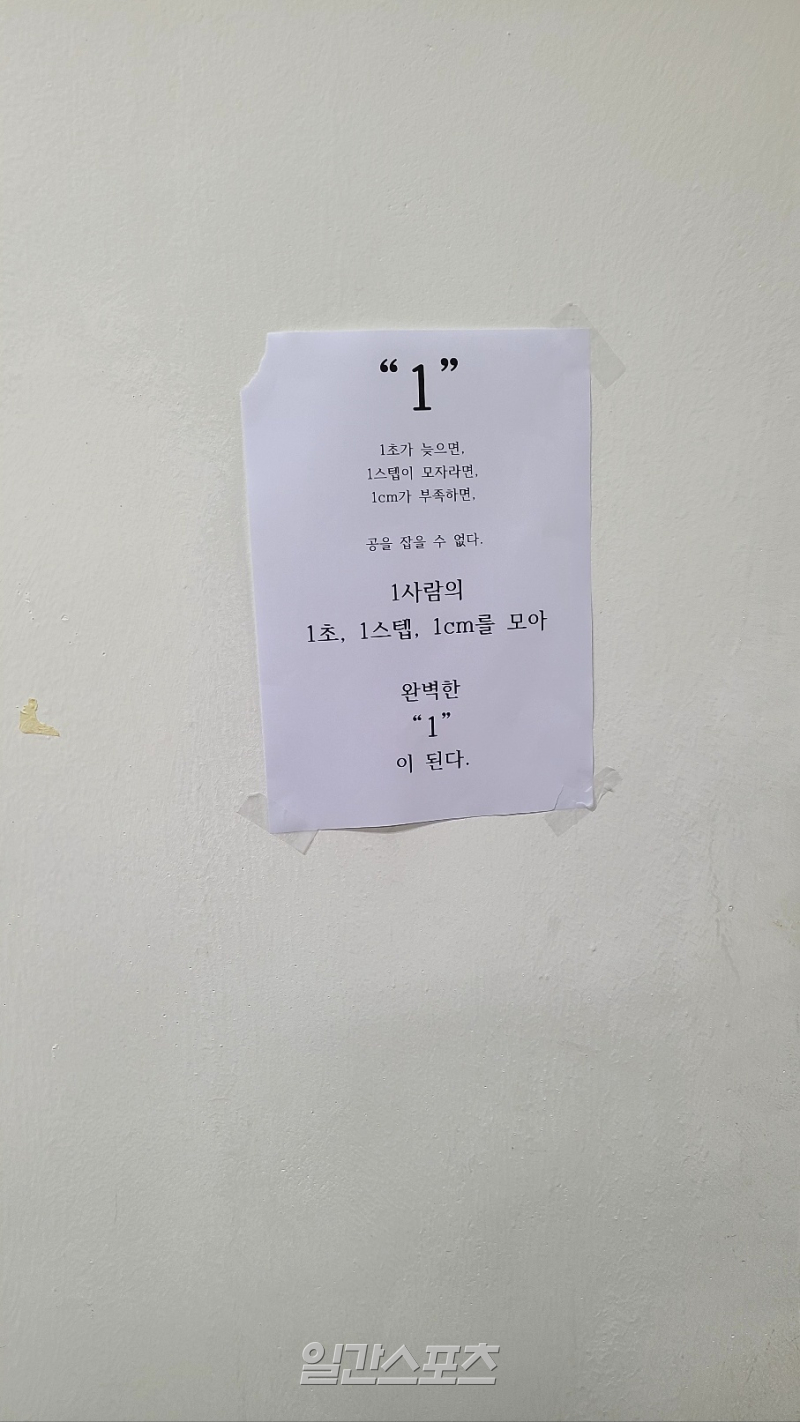 “1”
1초가 늦으면,
1스텝이 모자라면,
1cm가 부족하면,
공을 잡을 수 없다.
1사람의
1초, 1스텝, 1cm를 모아
완벽한
“1”
이 된다.
일간스포츠